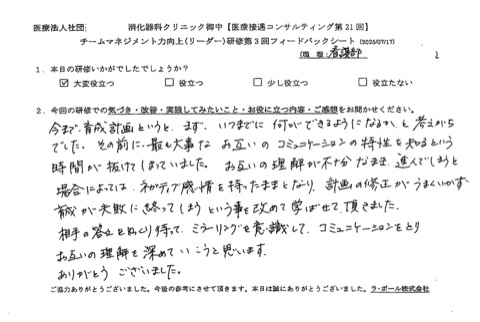 医療法人社団:　　　消化器科クリニック御中【医療接遇コンサルティング第21回】
チームマネジメント力向上(リーダー)研修第3回フィードバックシート (2025/07/17)
(職 種: 看護部 )
1．本日の研修いかがでしたでしょうか?
☑ 大変役立つ　□ 役立つ　□ 少し役立つ　□ 役立たない
2．今回の研修での気づき・改善・実践してみたいこと・お役に立つ内容・ご感想をお聞かせください。
今まで、育成計画というと、まず、いつまでに何ができるようになるか、と考えがち
でした。その前に、最も大事なお互いのコミュニケーションの特性を知るという
時間が抜けてしまっていました。お互いの理解が不十分なまま、進んでしまうと
場合によっては、ネガティブ感情を持ったままとなり、計画の修正がうまくいかず
育成が失敗に終ってしまうという事を改めて学ばせて頂きました。
相手の答えをゆっくり待って、ミラーリングを意識して、コミュニケーションをとり
お互いの理解を深めていこうと思います。
ありがとうございました。
ご協力ありがとうございました。今後の参考にさせて頂きます。本日は誠にありがとうございました。ラ・ポール株式会社